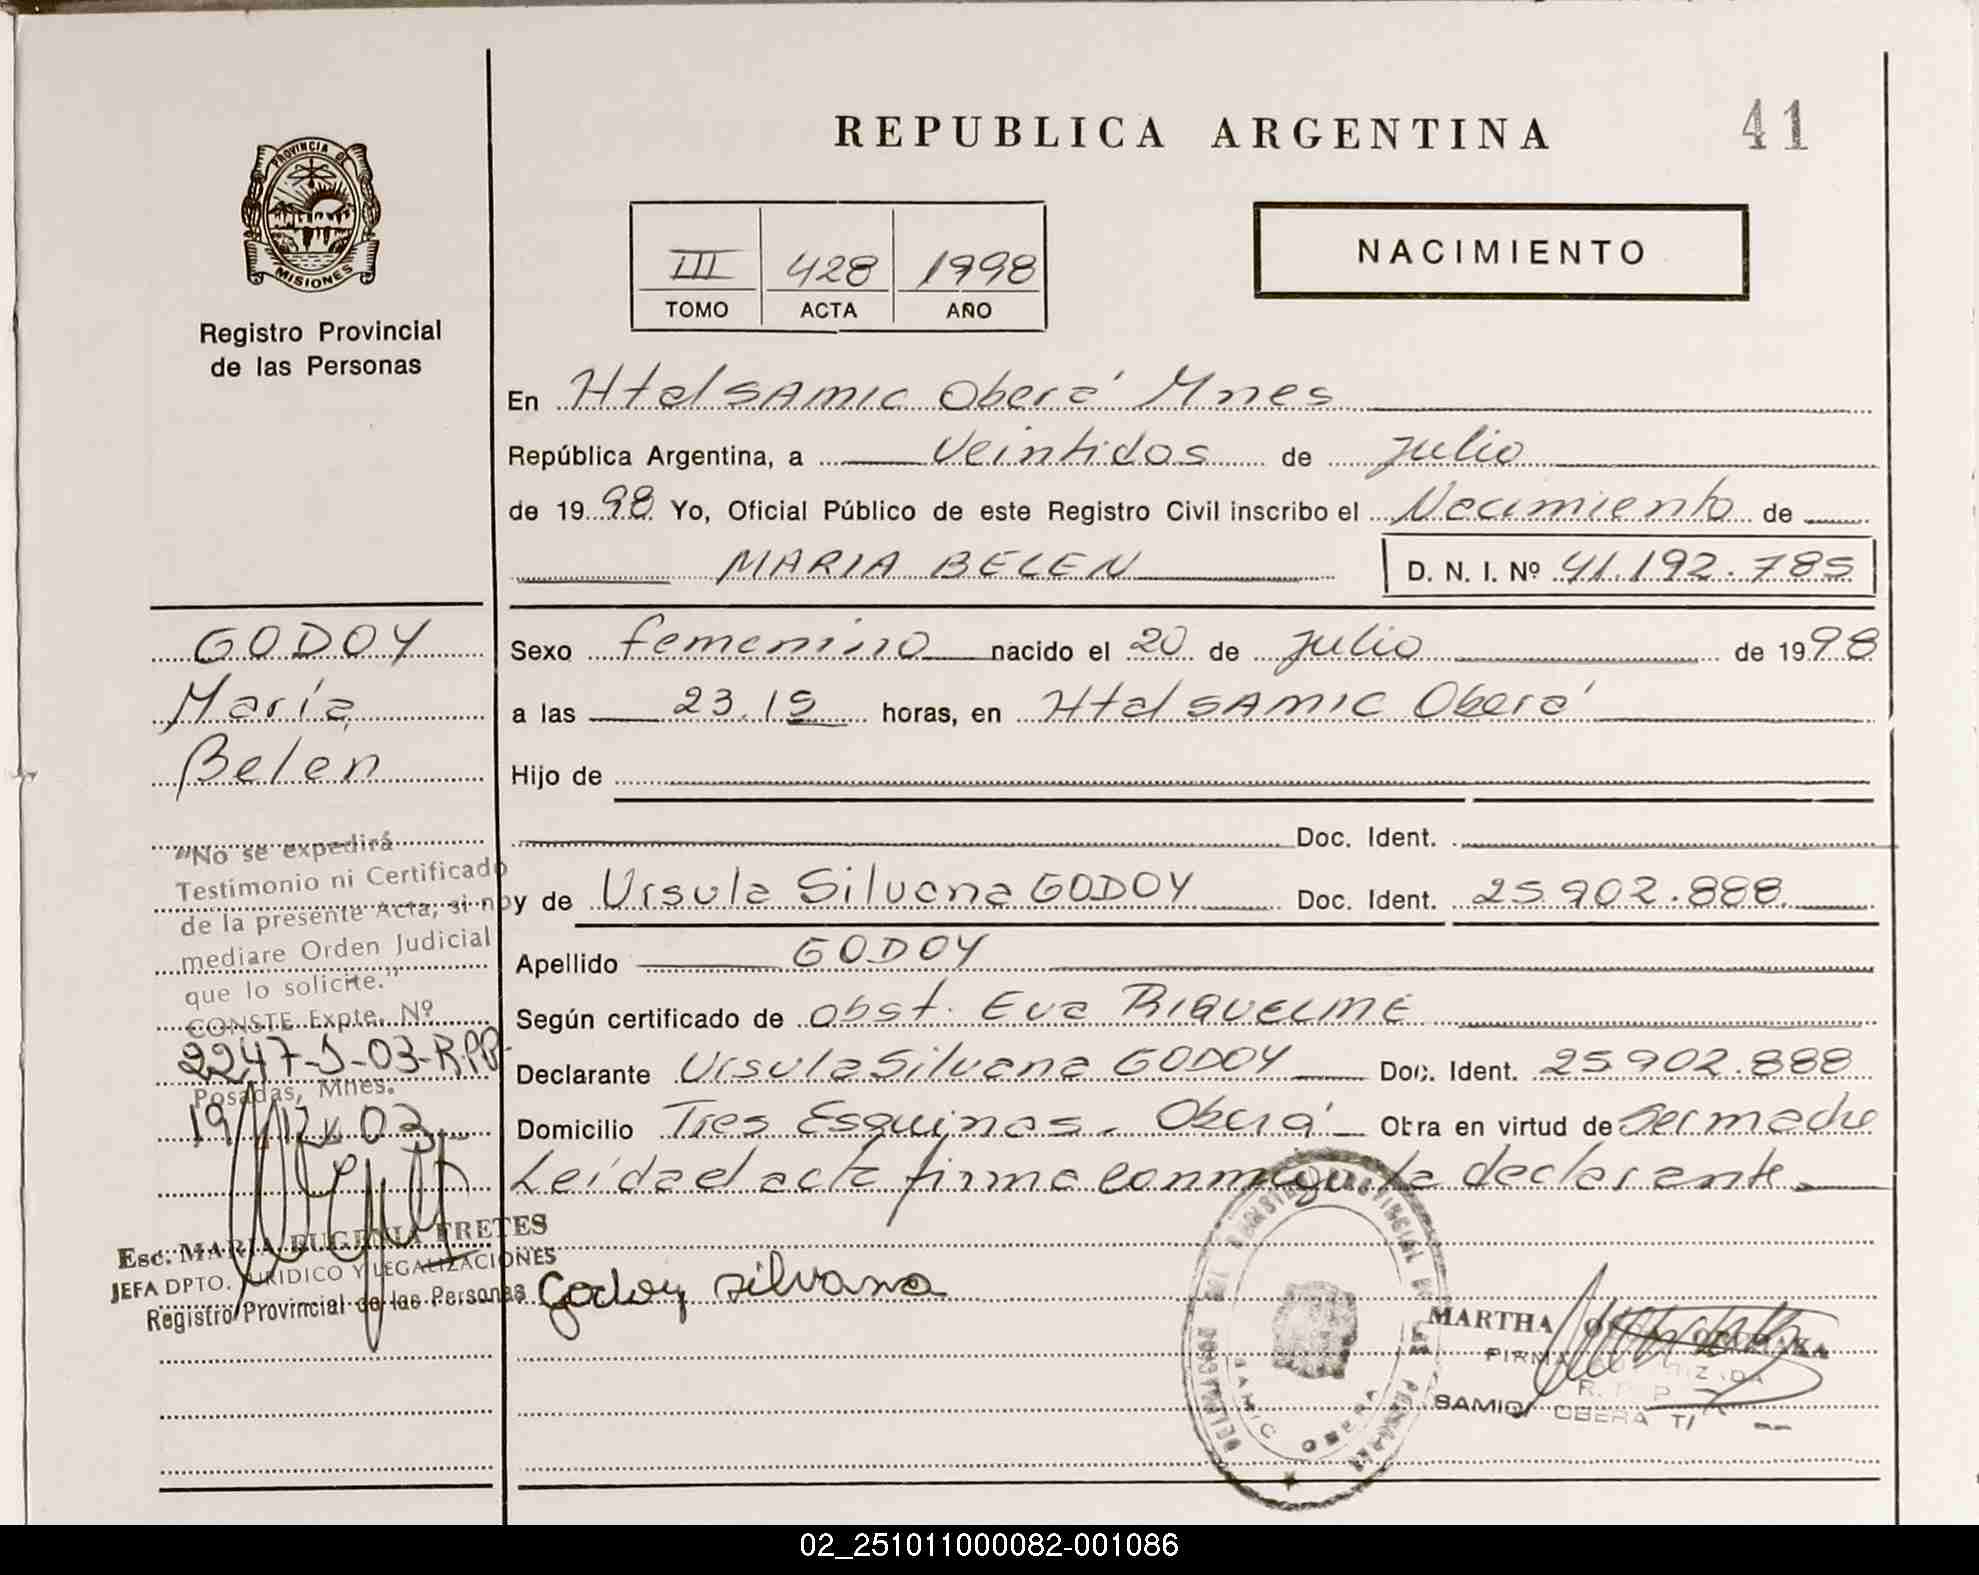 REPUBLICA ARGENTINA
41
PROVINCIA DE
MISIONES
Registro Provincial
de las Personas
III 428 1998
TOMO ACTA AÑO
NACIMIENTO
En Htal SAMIC Oberá Mnes
República Argentina, a Veintidos de julio
de 1998 Yo, Oficial Público de este Registro Civil inscribo el Nacimiento de
MARIA BELEN D. N. I. Nº 41.192.785
GODOY
María
Belen
Sexo femenino nacido el 20 de julio de 1998
a las 23.15 horas, en Htal SAMIC Oberá
Hijo de
Doc. Ident.
y de Ursula Silvana GODOY Doc. Ident. 25.902.888
Apellido GODOY
Según certificado de obst. Eva RIQUELME
Declarante Ursula Silvana GODOY Doc. Ident. 25.902.888
Domicilio Tres Esquinas. Oberá Obra en virtud de ser madre
Leída el acta firma conmigo la declarante.
"No se expedirá
Testimonio ni Certificado
de la presente Acta, si no
mediare Orden Judicial
que lo solicite."
CONSTE Expte. Nº
2247-J-03-R.PP.
Posadas, Mnes.
19/12/03
Esc. MARIA EUGENIA FRETES
JEFA DPTO. JURIDICO Y LEGALIZACIONES
Registro Provincial de las Personas
Godoy Silvana
REGISTRO PROVINCIAL DE LAS PERSONAS
SAMIC OBERA
MARTHA
FIRMA AUTORIZADA
SAMIC OBERA
02_251011000082-001086